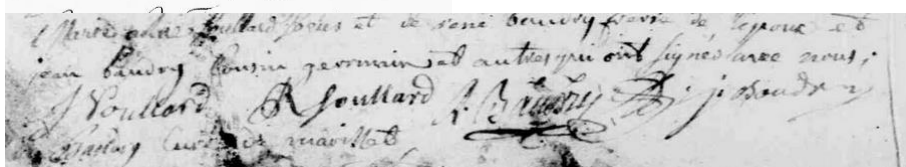 Soullard et de rené baudry frere de lepoux et
jean baudry cousin germain et autres qui ont signés avec nous;
J Soullard R Soullard R. Baudry j. baudry
curé de